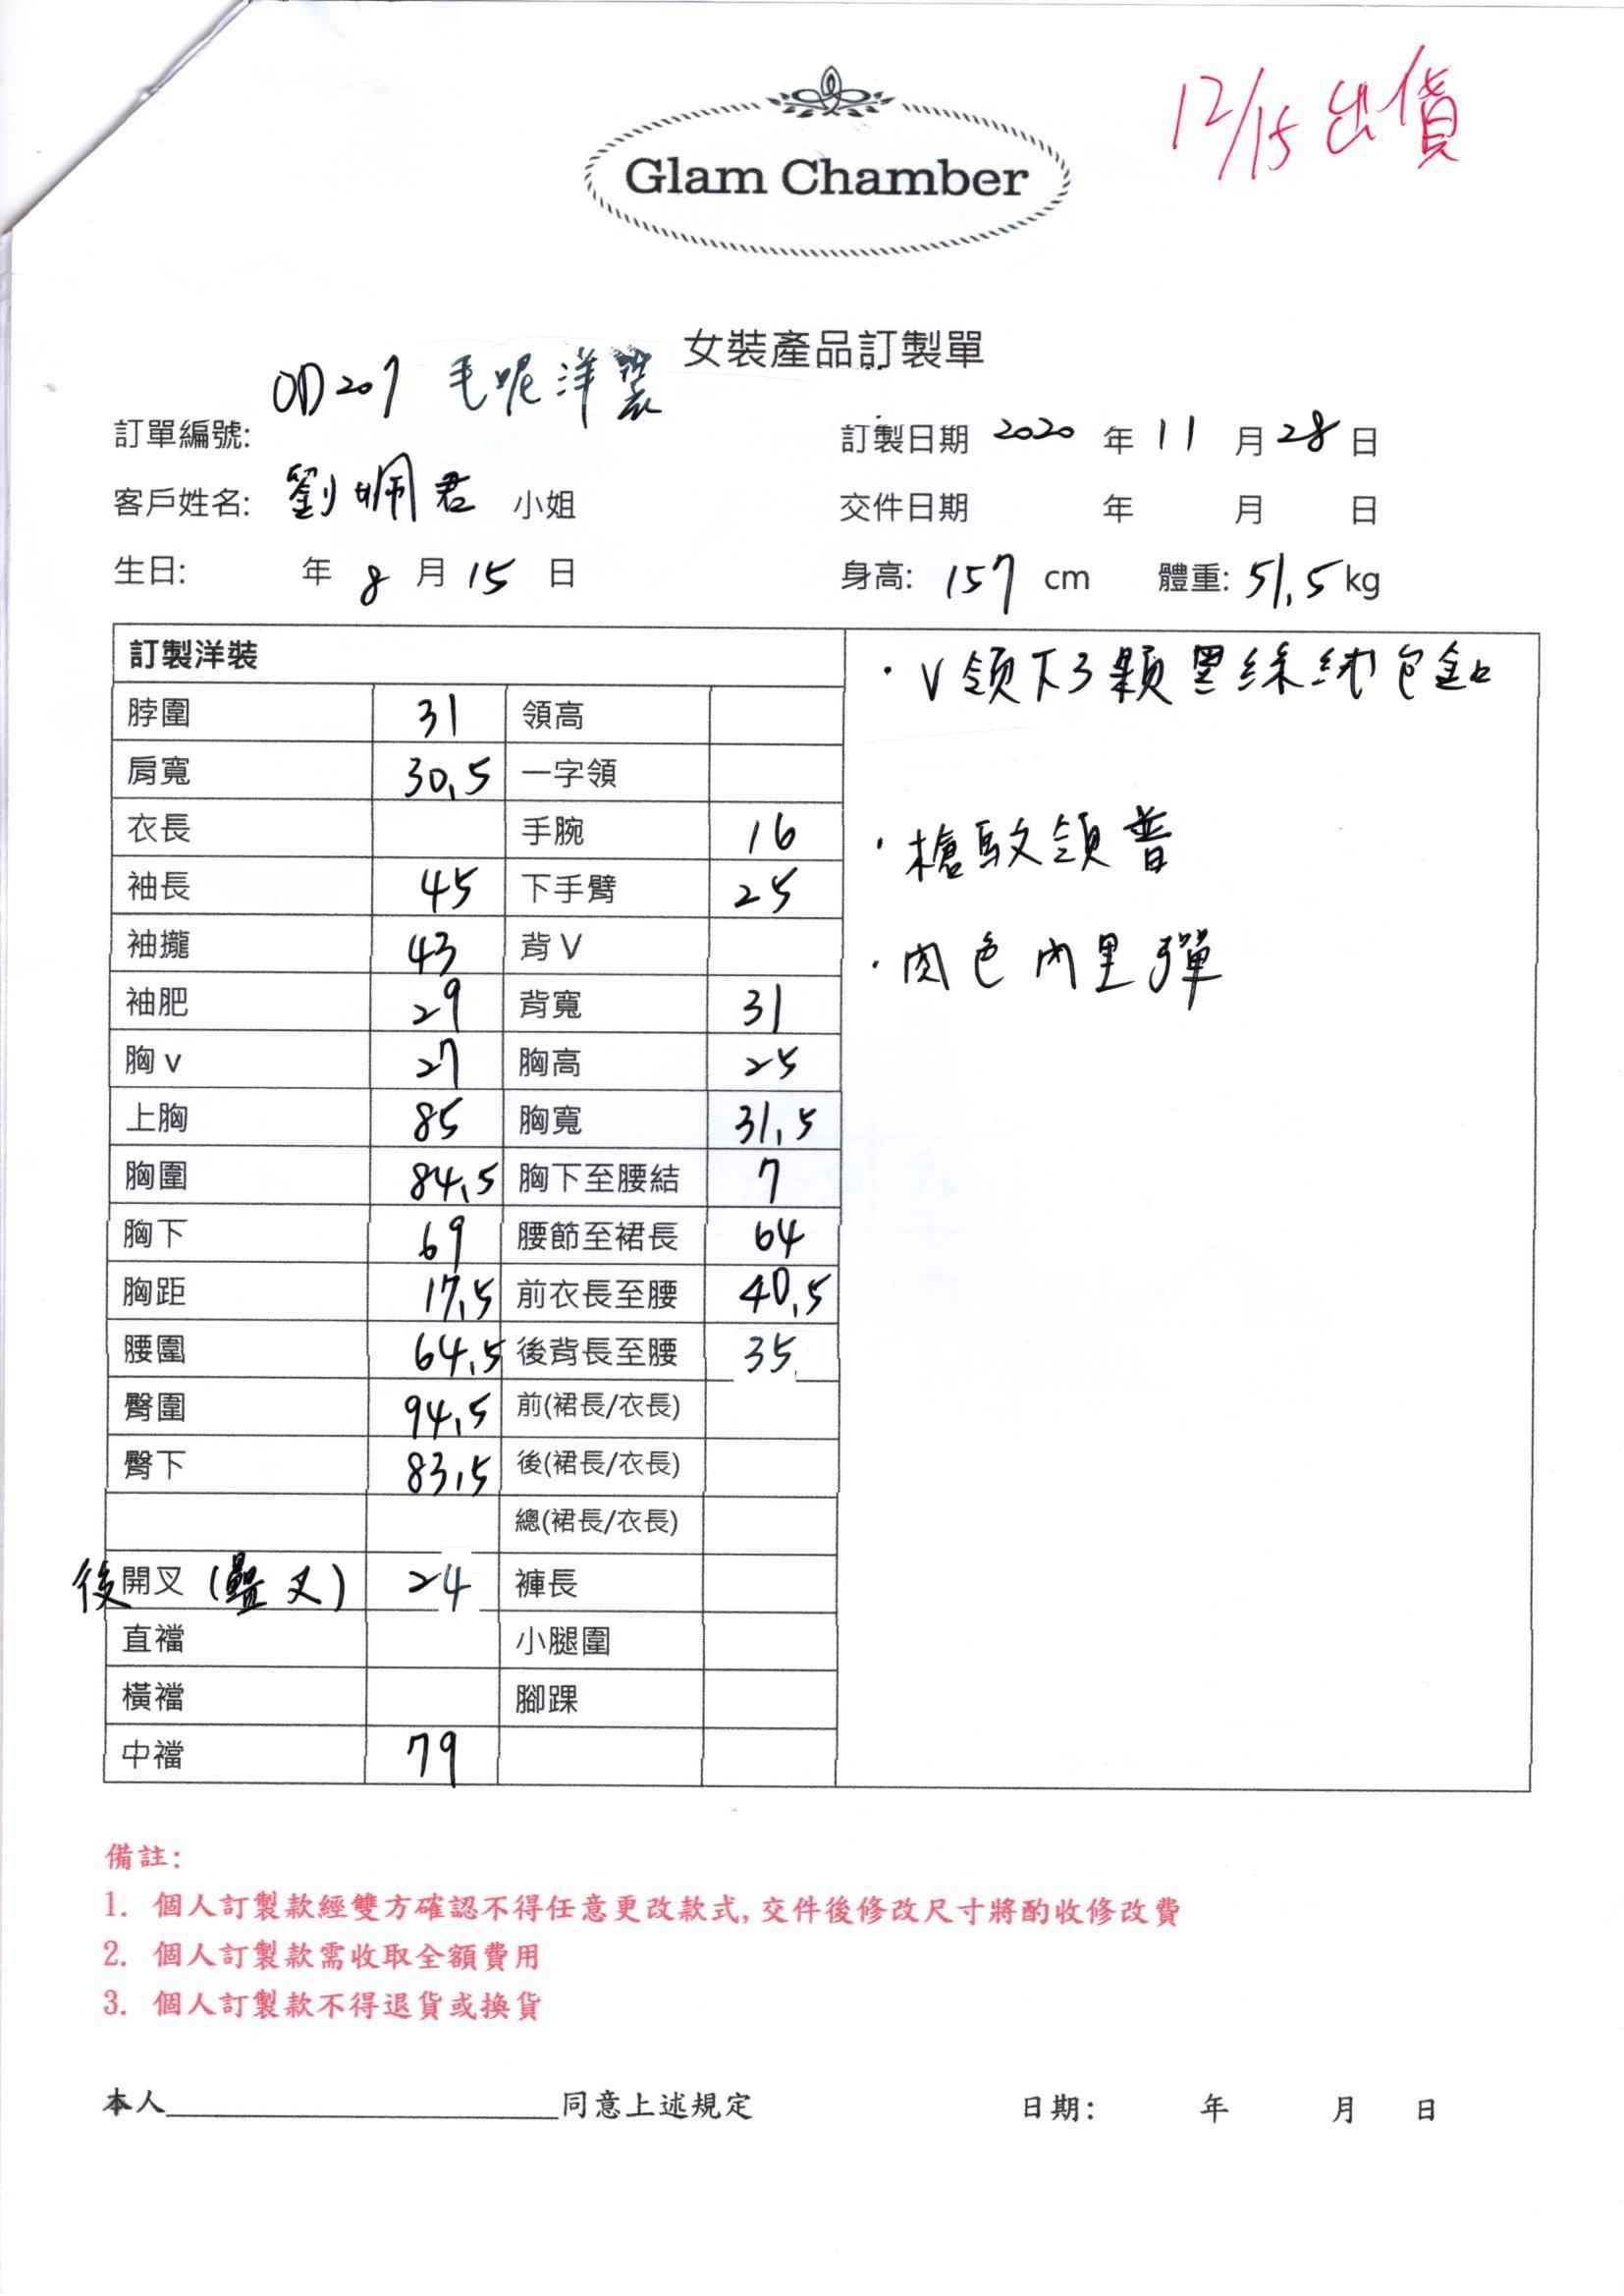 12/15 出貨
Glam Chamber
女裝產品訂製單
OD207 毛呢洋裝
訂單編號:
訂製日期 2020 年 11 月 28 日
客戶姓名: 劉姵君 小姐
交件日期 年 月 日
生日: 年 8 月 15 日
身高: 157 cm 體重: 51.5 kg
訂製洋裝
脖圍 31 領高
肩寬 30.5 一字領
衣長 手腕 16
袖長 45 下手臂 25
袖攏 43 背V
袖肥 29 背寬 31
胸v 27 胸高 25
上胸 85 胸寬 31.5
胸圍 84.5 胸下至腰結 7
胸下 69 腰節至裙長 64
胸距 17.5 前衣長至腰 40.5
腰圍 64.5 後背長至腰 35
臀圍 94.5 前(裙長/衣長)
臀下 83.5 後(裙長/衣長)
總(裙長/衣長)
後開叉(疊叉) 24 褲長
直襠 小腿圍
橫襠 腳踝
中襠 79
·V領下3顆黑絲絨包釦
·槍駁領普
·肉色內里彈
備註:
1. 個人訂製款經雙方確認不得任意更改款式,交件後修改尺寸將酌收修改費
2. 個人訂製款需收取全額費用
3. 個人訂製款不得退貨或換貨
本人 同意上述規定 日期: 年 月 日